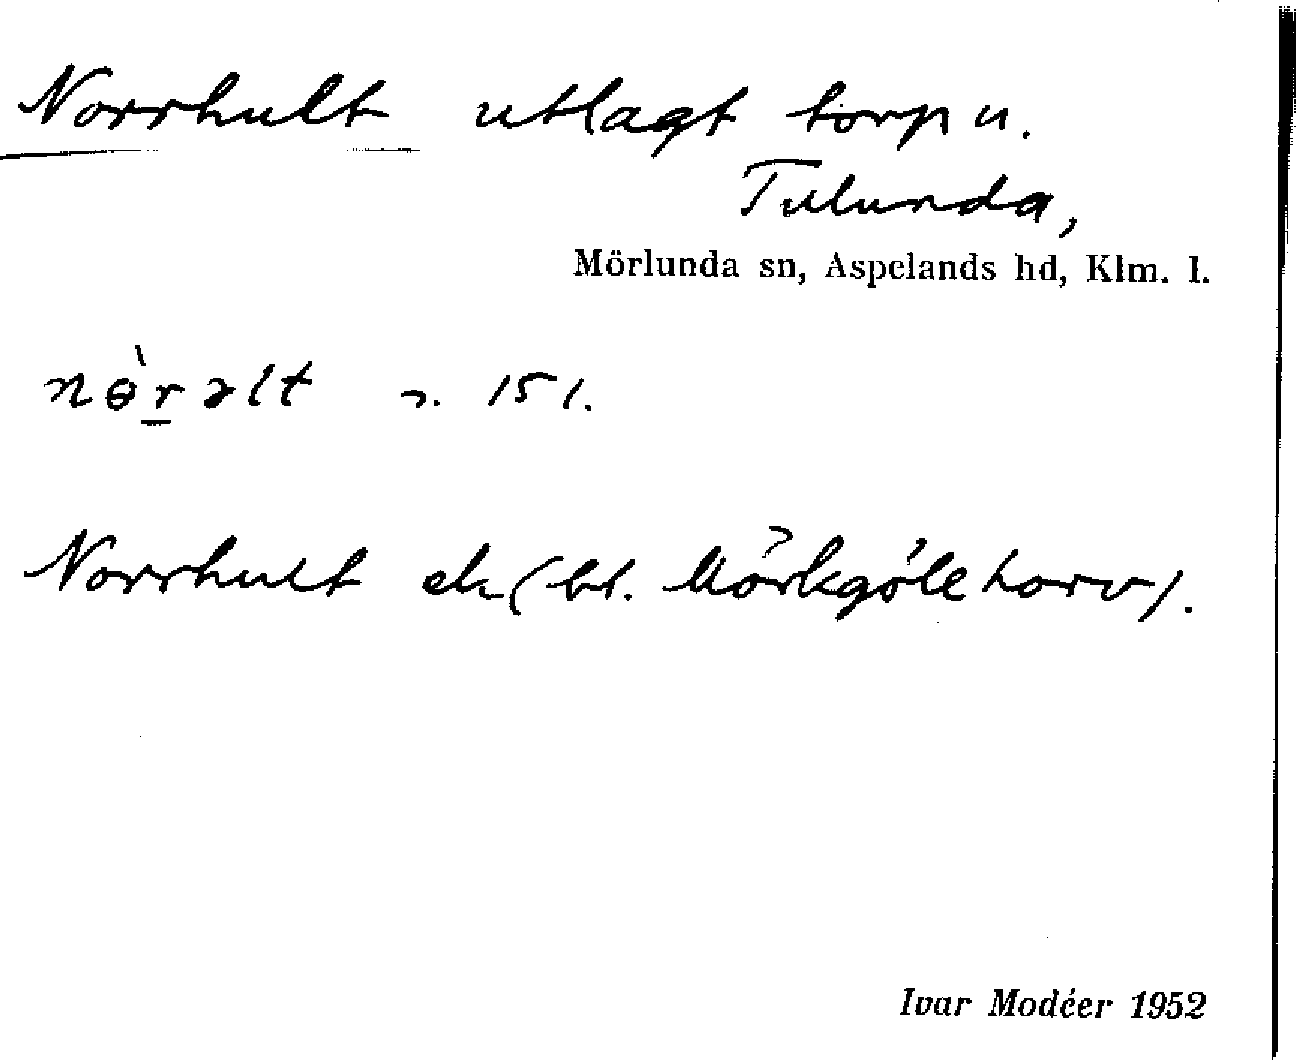 Norrhult utlagt torp u.
Tulunda,
Mörlunda sn, Aspelands hd, Klm. l.
nɵ̀r̠əlt 151.
Norrhult ek (bl. Mörkgöle torv).
Ivar Modéer 1952